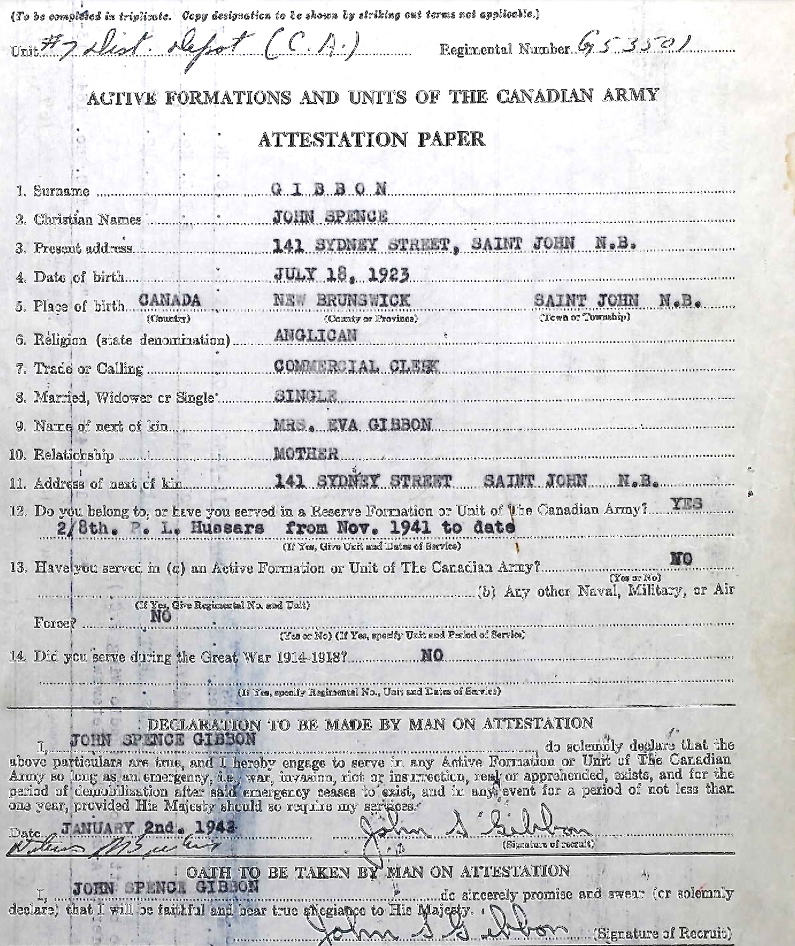 (To be completed in triplicate. Copy designation to be shown by striking out terms not applicable.)
Unit #7 Dist. Depot (C.A.) Regimental Number G53501
ACTIVE FORMATIONS AND UNITS OF THE CANADIAN ARMY
ATTESTATION PAPER
1. Surname GIBBON
2. Christian Names JOHN SPENCE
3. Present address 141 SYDNEY STREET, SAINT JOHN N.B.
4. Date of birth JULY 18, 1923
5. Place of birth CANADA NEW BRUNSWICK SAINT JOHN N.B.
(Country) (County or Province) (Town or Township)
6. Religion (state denomination) ANGLICAN
7. Trade or Calling COMMERCIAL CLERK
8. Married, Widower or Single SINGLE
9. Name of next of kin MRS. EVA GIBBON
10. Relationship MOTHER
11. Address of next of kin 141 SYDNEY STREET SAINT JOHN N.B.
12. Do you belong to, or have you served in a Reserve Formation or Unit of The Canadian Army? YES
2/8th. P. L. Hussars from Nov. 1941 to date
(If Yes, Give Unit and Dates of Service)
13. Have you served in (a) an Active Formation or Unit of The Canadian Army? NO
(Yes or No)
(b) Any other Naval, Military, or Air
(If Yes, Give Regimental No. and Unit)
Force? NO
(Yes or No) (If Yes, specify Unit and Period of Service)
14. Did you serve during the Great War 1914-1918? NO
(If Yes, specify Regimental No., Unit and Dates of Service)
DECLARATION TO BE MADE BY MAN ON ATTESTATION
I, JOHN SPENCE GIBBON do solemnly declare that the
above particulars are true, and I hereby engage to serve in any Active Formation or Unit of The Canadian
Army so long as an emergency, i.e., war, invasion, riot or insurrection, real or apprehended, exists, and for the
period of demobilization after said emergency ceases to exist, and in any event for a period of not less than
one year, provided His Majesty should so require my services.
Date JANUARY 2nd. 1943 John S Gibbon
(Signature of recruit)
OATH TO BE TAKEN BY MAN ON ATTESTATION
I, JOHN SPENCE GIBBON do sincerely promise and swear (or solemnly
declare) that I will be faithful and bear true allegiance to His Majesty.
John S Gibbon (Signature of Recruit)